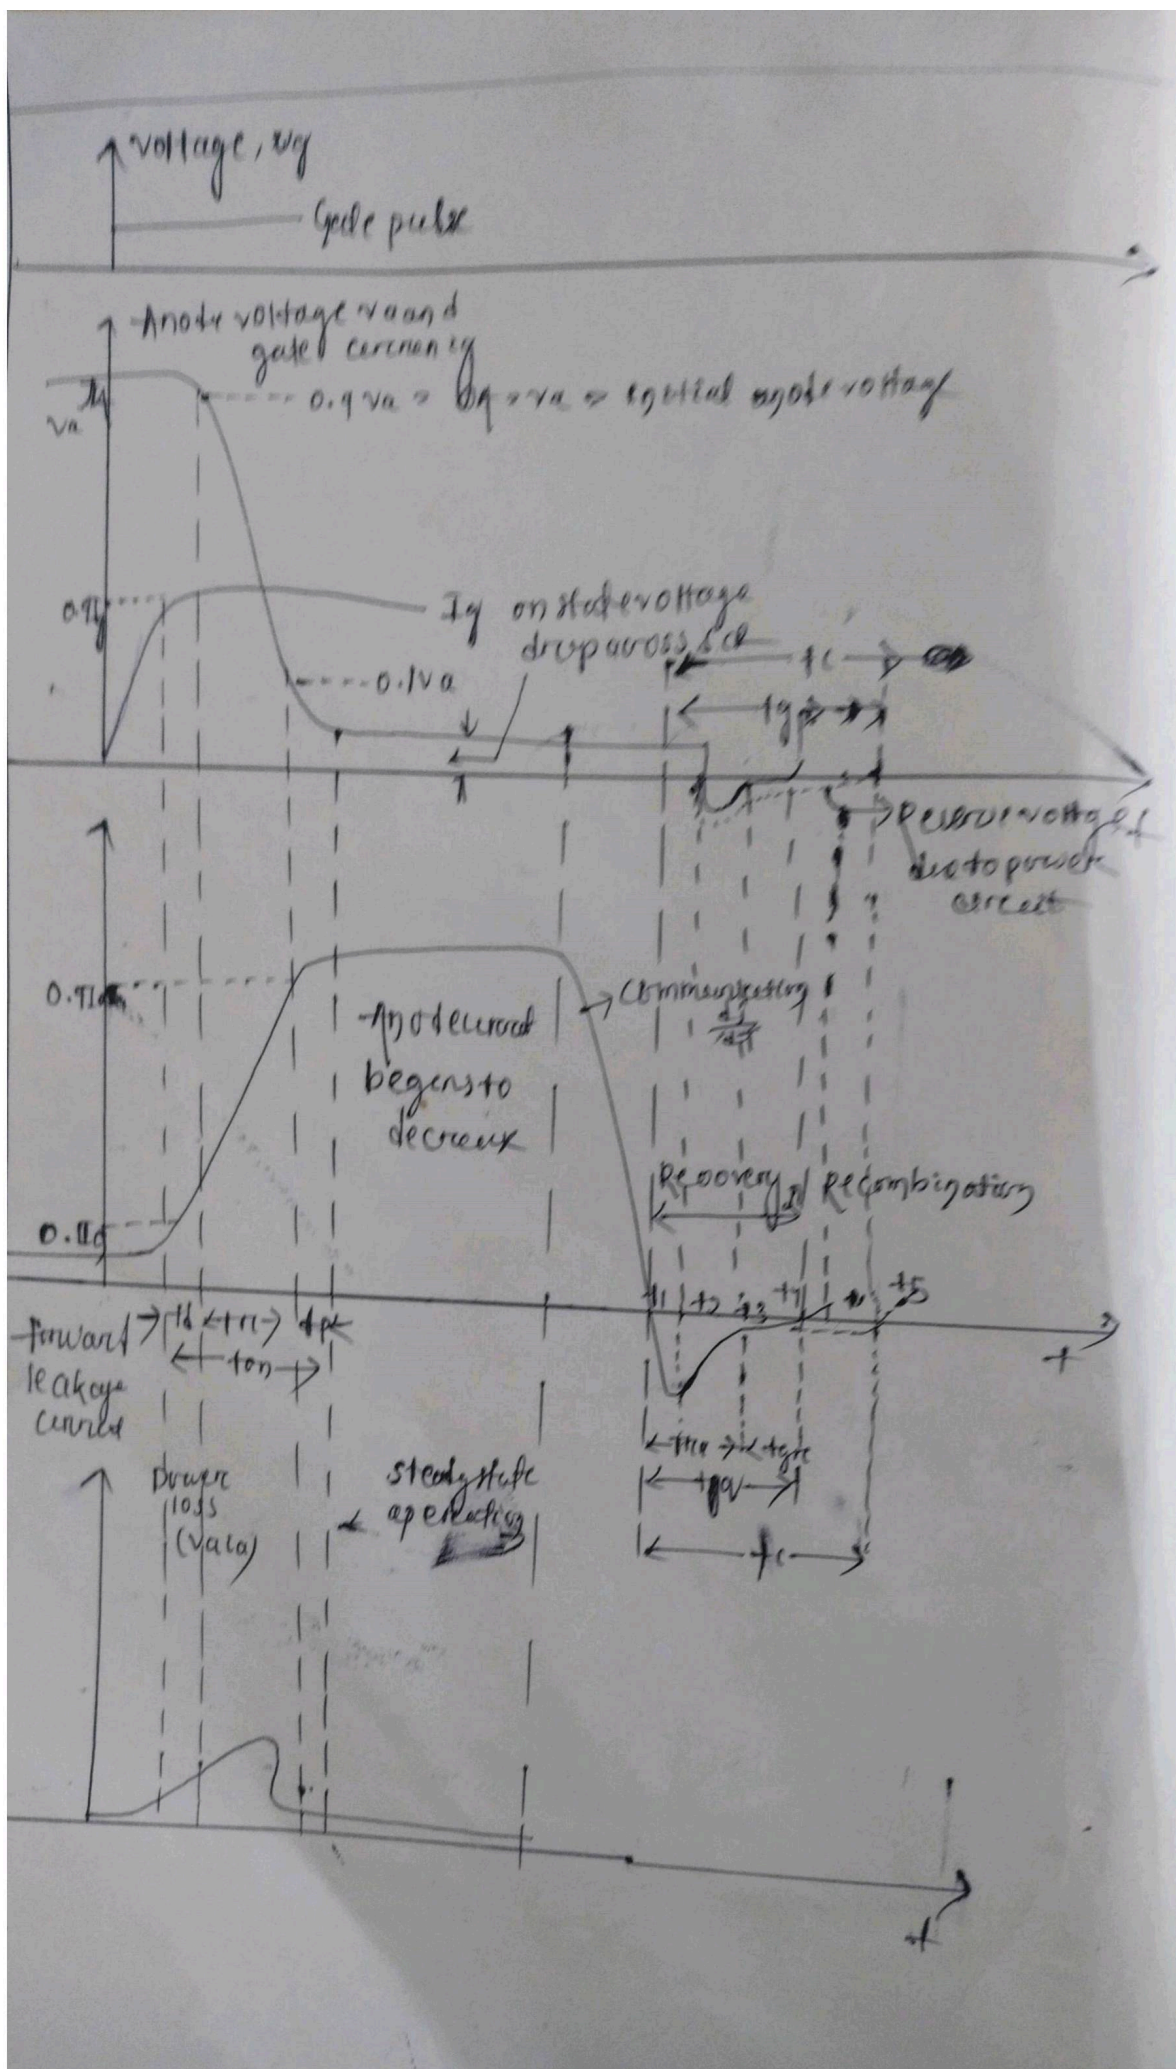 voltage, vg
Gate pulse
Anode voltage va and
gate current ig
Va
0.9 va = oq = va = initial anode voltage
0.9Ig
Ig on state voltage
drop across scr
0.1va
tc
tq
Reserve voltage
due to power
circuit
t
0.9Ia
Commutating
di/dt
Anode current
begins to
decrease
Recovery
Recombination
0.1Ia
t1 t2 t3 t4 t5
Forward
leakage
current
td tr tp
ton
t
trr tgr
tq
tc
Power
loss
(va ia)
steady state
operation
t